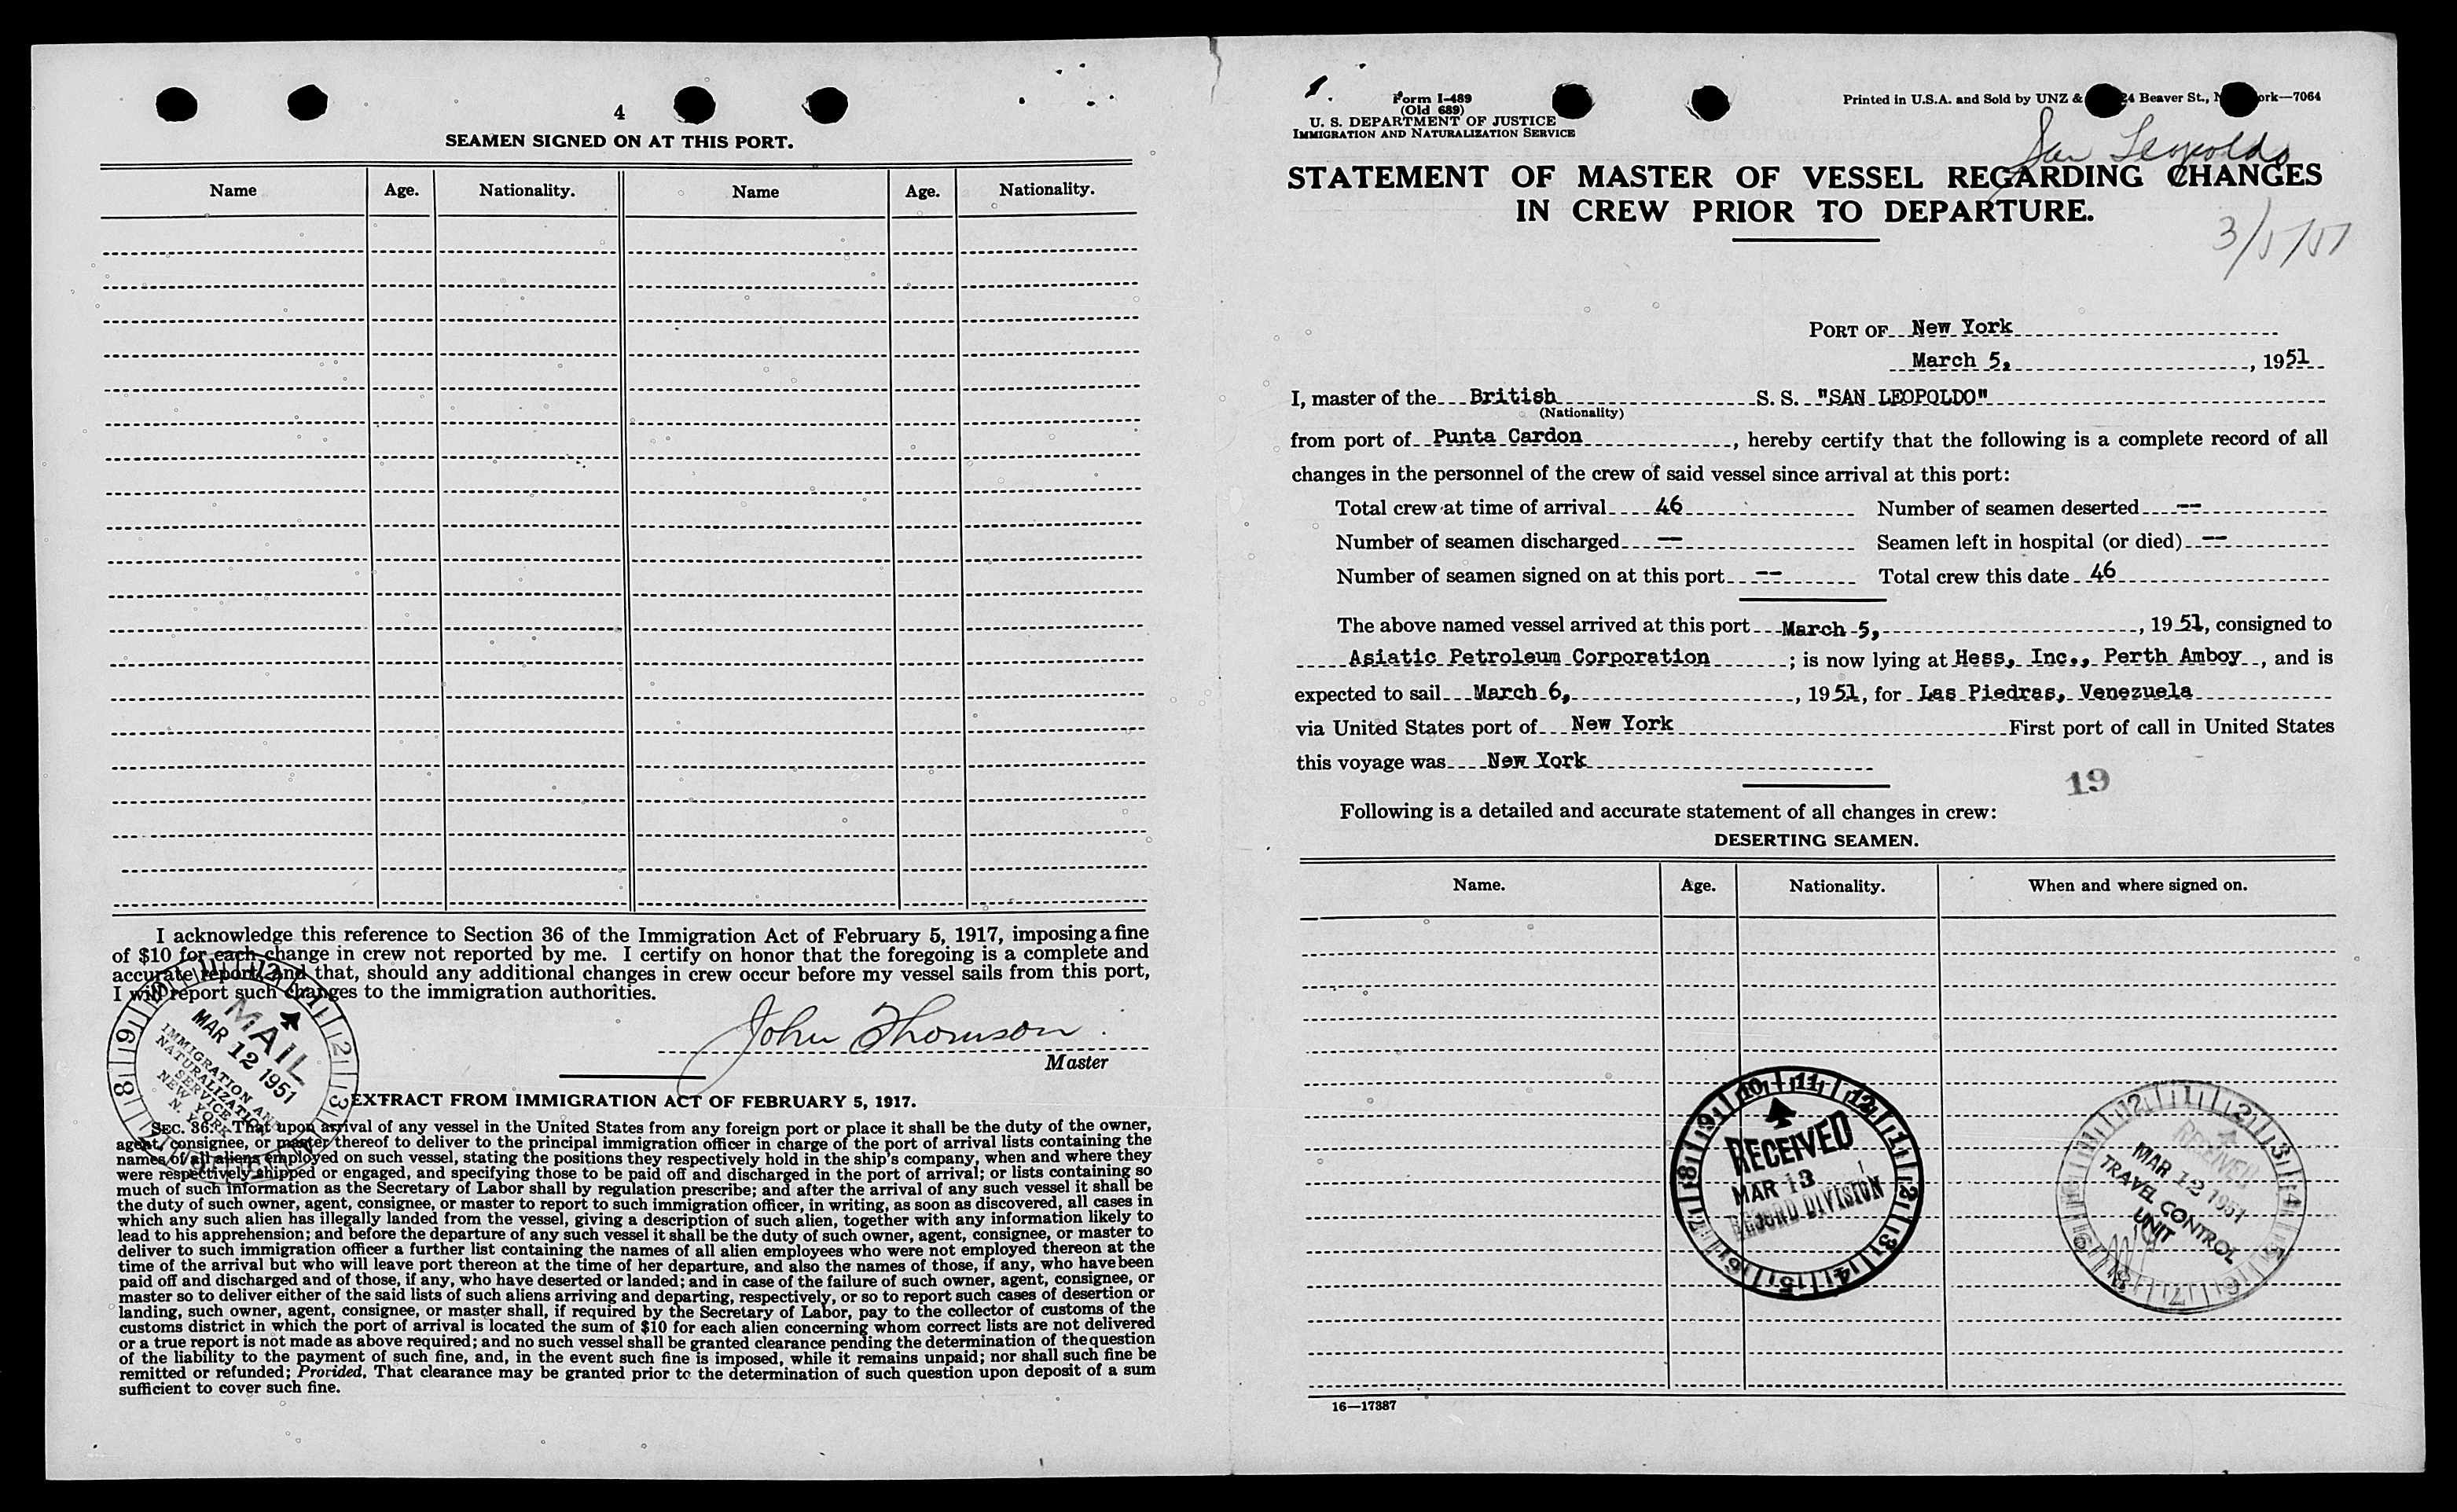 4
SEAMEN SIGNED ON AT THIS PORT.
Name Age. Nationality. Name Age. Nationality.
I acknowledge this reference to Section 36 of the Immigration Act of February 5, 1917, imposing a fine
of $10 for each change in crew not reported by me. I certify on honor that the foregoing is a complete and
accurate report, and that, should any additional changes in crew occur before my vessel sails from this port,
I will report such changes to the immigration authorities.
John Thomson
Master
MAIL
MAR 12 1951
IMMIGRATION AND
NATURALIZATION
SERVICE
NEW YORK
N. Y.
EXTRACT FROM IMMIGRATION ACT OF FEBRUARY 5, 1917.
SEC. 36. That upon arrival of any vessel in the United States from any foreign port or place it shall be the duty of the owner,
agent, consignee, or master thereof to deliver to the principal immigration officer in charge of the port of arrival lists containing the
names of all aliens employed on such vessel, stating the positions they respectively hold in the ship's company, when and where they
were respectively shipped or engaged, and specifying those to be paid off and discharged in the port of arrival; or lists containing so
much of such information as the Secretary of Labor shall by regulation prescribe; and after the arrival of any such vessel it shall be
the duty of such owner, agent, consignee, or master to report to such immigration officer, in writing, as soon as discovered, all cases in
which any such alien has illegally landed from the vessel, giving a description of such alien, together with any information likely to
lead to his apprehension; and before the departure of any such vessel it shall be the duty of such owner, agent, consignee, or master to
deliver to such immigration officer a further list containing the names of all alien employees who were not employed thereon at the
time of the arrival but who will leave port thereon at the time of her departure, and also the names of those, if any, who have been
paid off and discharged and of those, if any, who have deserted or landed; and in case of the failure of such owner, agent, consignee, or
master so to deliver either of the said lists of such aliens arriving and departing, respectively, or so to report such cases of desertion or
landing, such owner, agent, consignee, or master shall, if required by the Secretary of Labor, pay to the collector of customs of the
customs district in which the port of arrival is located the sum of $10 for each alien concerning whom correct lists are not delivered
or a true report is not made as above required; and no such vessel shall be granted clearance pending the determination of the question
of the liability to the payment of such fine, and, in the event such fine is imposed, while it remains unpaid; nor shall such fine be
remitted or refunded; Provided, That clearance may be granted prior to the determination of such question upon deposit of a sum
sufficient to cover such fine.
1.
Form I-489
(Old 689)
U. S. DEPARTMENT OF JUSTICE
IMMIGRATION AND NATURALIZATION SERVICE
Printed in U.S.A. and Sold by UNZ & 24 Beaver St., York—7064
San Leopoldo
STATEMENT OF MASTER OF VESSEL REGARDING CHANGES
IN CREW PRIOR TO DEPARTURE.
3/5/51
PORT OF New York
March 5, , 1951
I, master of the British S. S. "SAN LEOPOLDO"
(Nationality)
from port of Punta Cardon , hereby certify that the following is a complete record of all
changes in the personnel of the crew of said vessel since arrival at this port:
Total crew at time of arrival 46 Number of seamen deserted --
Number of seamen discharged -- Seamen left in hospital (or died) --
Number of seamen signed on at this port -- Total crew this date 46
The above named vessel arrived at this port March 5, , 1951, consigned to
Asiatic Petroleum Corporation ; is now lying at Hess, Inc., Perth Amboy , and is
expected to sail March 6, , 1951, for Las Piedras, Venezuela
via United States port of New York First port of call in United States
this voyage was New York
19
Following is a detailed and accurate statement of all changes in crew:
DESERTING SEAMEN.
Name. Age. Nationality. When and where signed on.
RECEIVED
MAR 13
RECORD DIVISION
RECEIVED
MAR 12 1951
TRAVEL CONTROL
UNIT
16—17387